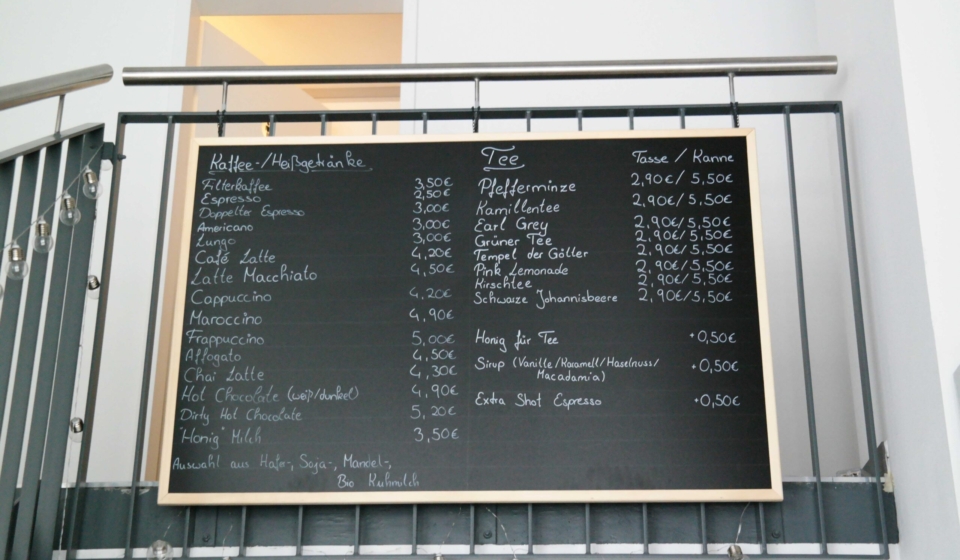 Kaffee-/Heißgetränke
Filterkaffee 3,50€
Espresso 2,50€
Doppelter Espresso 3,00€
Americano 3,00€
Lungo 3,00€
Café Latte 4,20€
Latte Macchiato 4,50€
Cappuccino 4,20€
Maroccino 4,90€
Frappuccino 5,00€
Affogato 4,50€
Chai Latte 4,30€
Hot Chocolate (weiß/dunkel) 4,90€
Dirty Hot Chocolate 5,20€
"Honig" Milch 3,50€
Auswahl aus Hafer-, Soja-, Mandel-,
Bio Kuhmilch
Tee Tasse / Kanne
Pfefferminze 2,90€/ 5,50€
Kamillentee 2,90€/ 5,50€
Earl Grey 2,90€/5,50€
Grüner Tee 2,90€/5,50€
Tempel der Götter 2,90€/5,50€
Pink Lemonade 2,90€/5,50€
Kirschtee 2,90€/5,50€
Schwarze Johannisbeere 2,90€/5,50€
Honig für Tee +0,50€
Sirup (Vanille/Karamell/Haselnuss/ +0,50€
Macadamia)
Extra Shot Espresso +0,50€